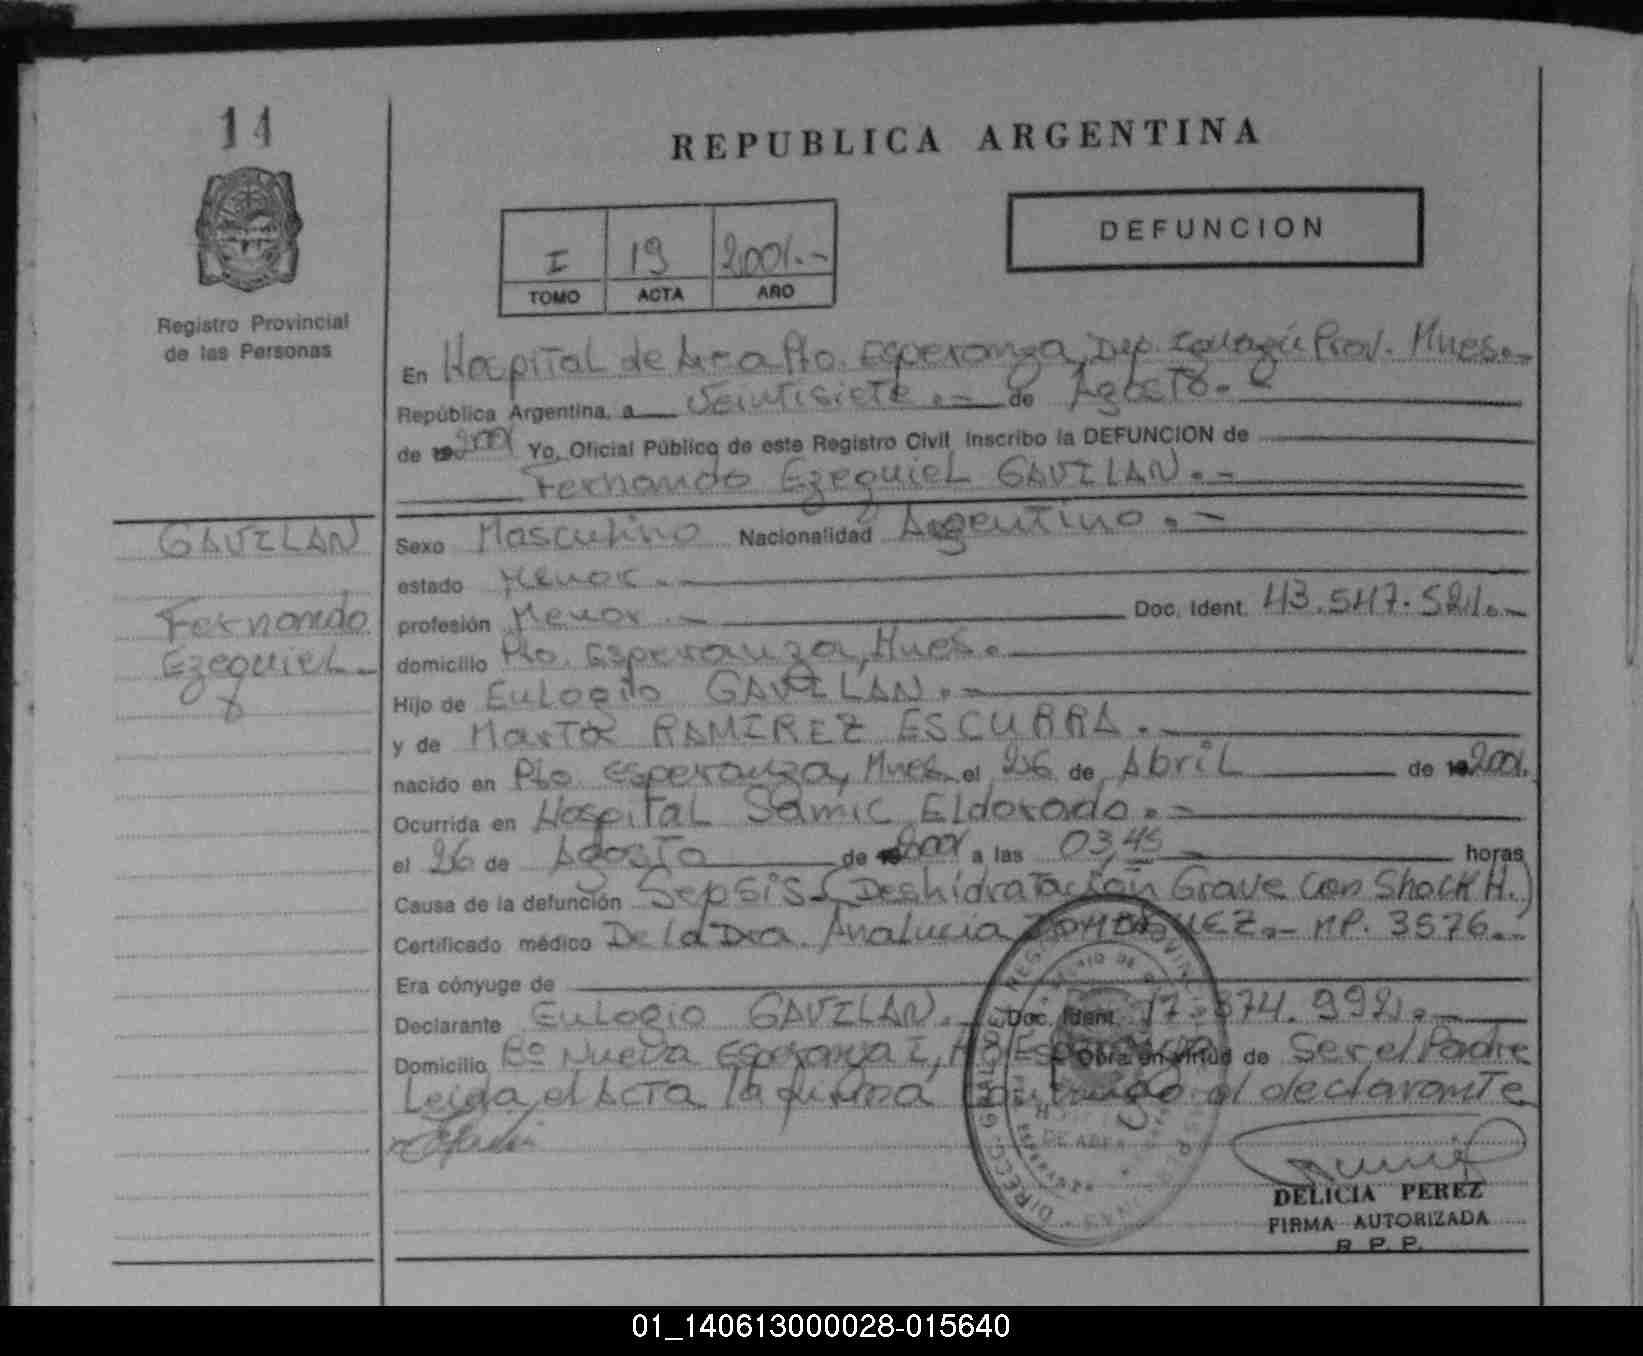 11
REPUBLICA ARGENTINA
DEFUNCION
I 19 2001.-
TOMO ACTA AÑO
Registro Provincial
de las Personas
En Hospital de Area Pto. Esperanza, Dep. Iguazú Prov. Mnes.-
República Argentina, a Veintisiete.- de Agosto.-
de 2001 Yo, Oficial Público de este Registro Civil, Inscribo la DEFUNCION de
Fernando Ezequiel GAVILAN.-
GAVILAN
Fernando
Ezequiel.-
Sexo Masculino Nacionalidad Argentino.-
estado Menor.-
profesión Menor.- Doc. Ident. 43.547.521.-
domicilio Pto. Esperanza, Mnes.
Hijo de Eulogio GAVILAN.-
y de Marta RAMIREZ ESCURRA.
nacido en Pto. Esperanza, Mnes. el 26 de Abril de 2001.
Ocurrida en Hospital Samic Eldorado.-
el 26 de Agosto de 2001 a las 03,45 horas
Causa de la defunción Sepsis-(Deshidratación Grave con Shock H.)
Certificado médico De la Dra. Analucia MP. 3576.-
Era cónyuge de
Declarante Eulogio GAVILAN.- Doc. Ident. 17.874.992.-
Domicilio Bº Nueva Esperanza I, Obra en virtud de Ser el Padre
Leída el Acta la firma el declarante
DELICIA PEREZ
FIRMA AUTORIZADA
R. P. P.
01_140613000028-015640